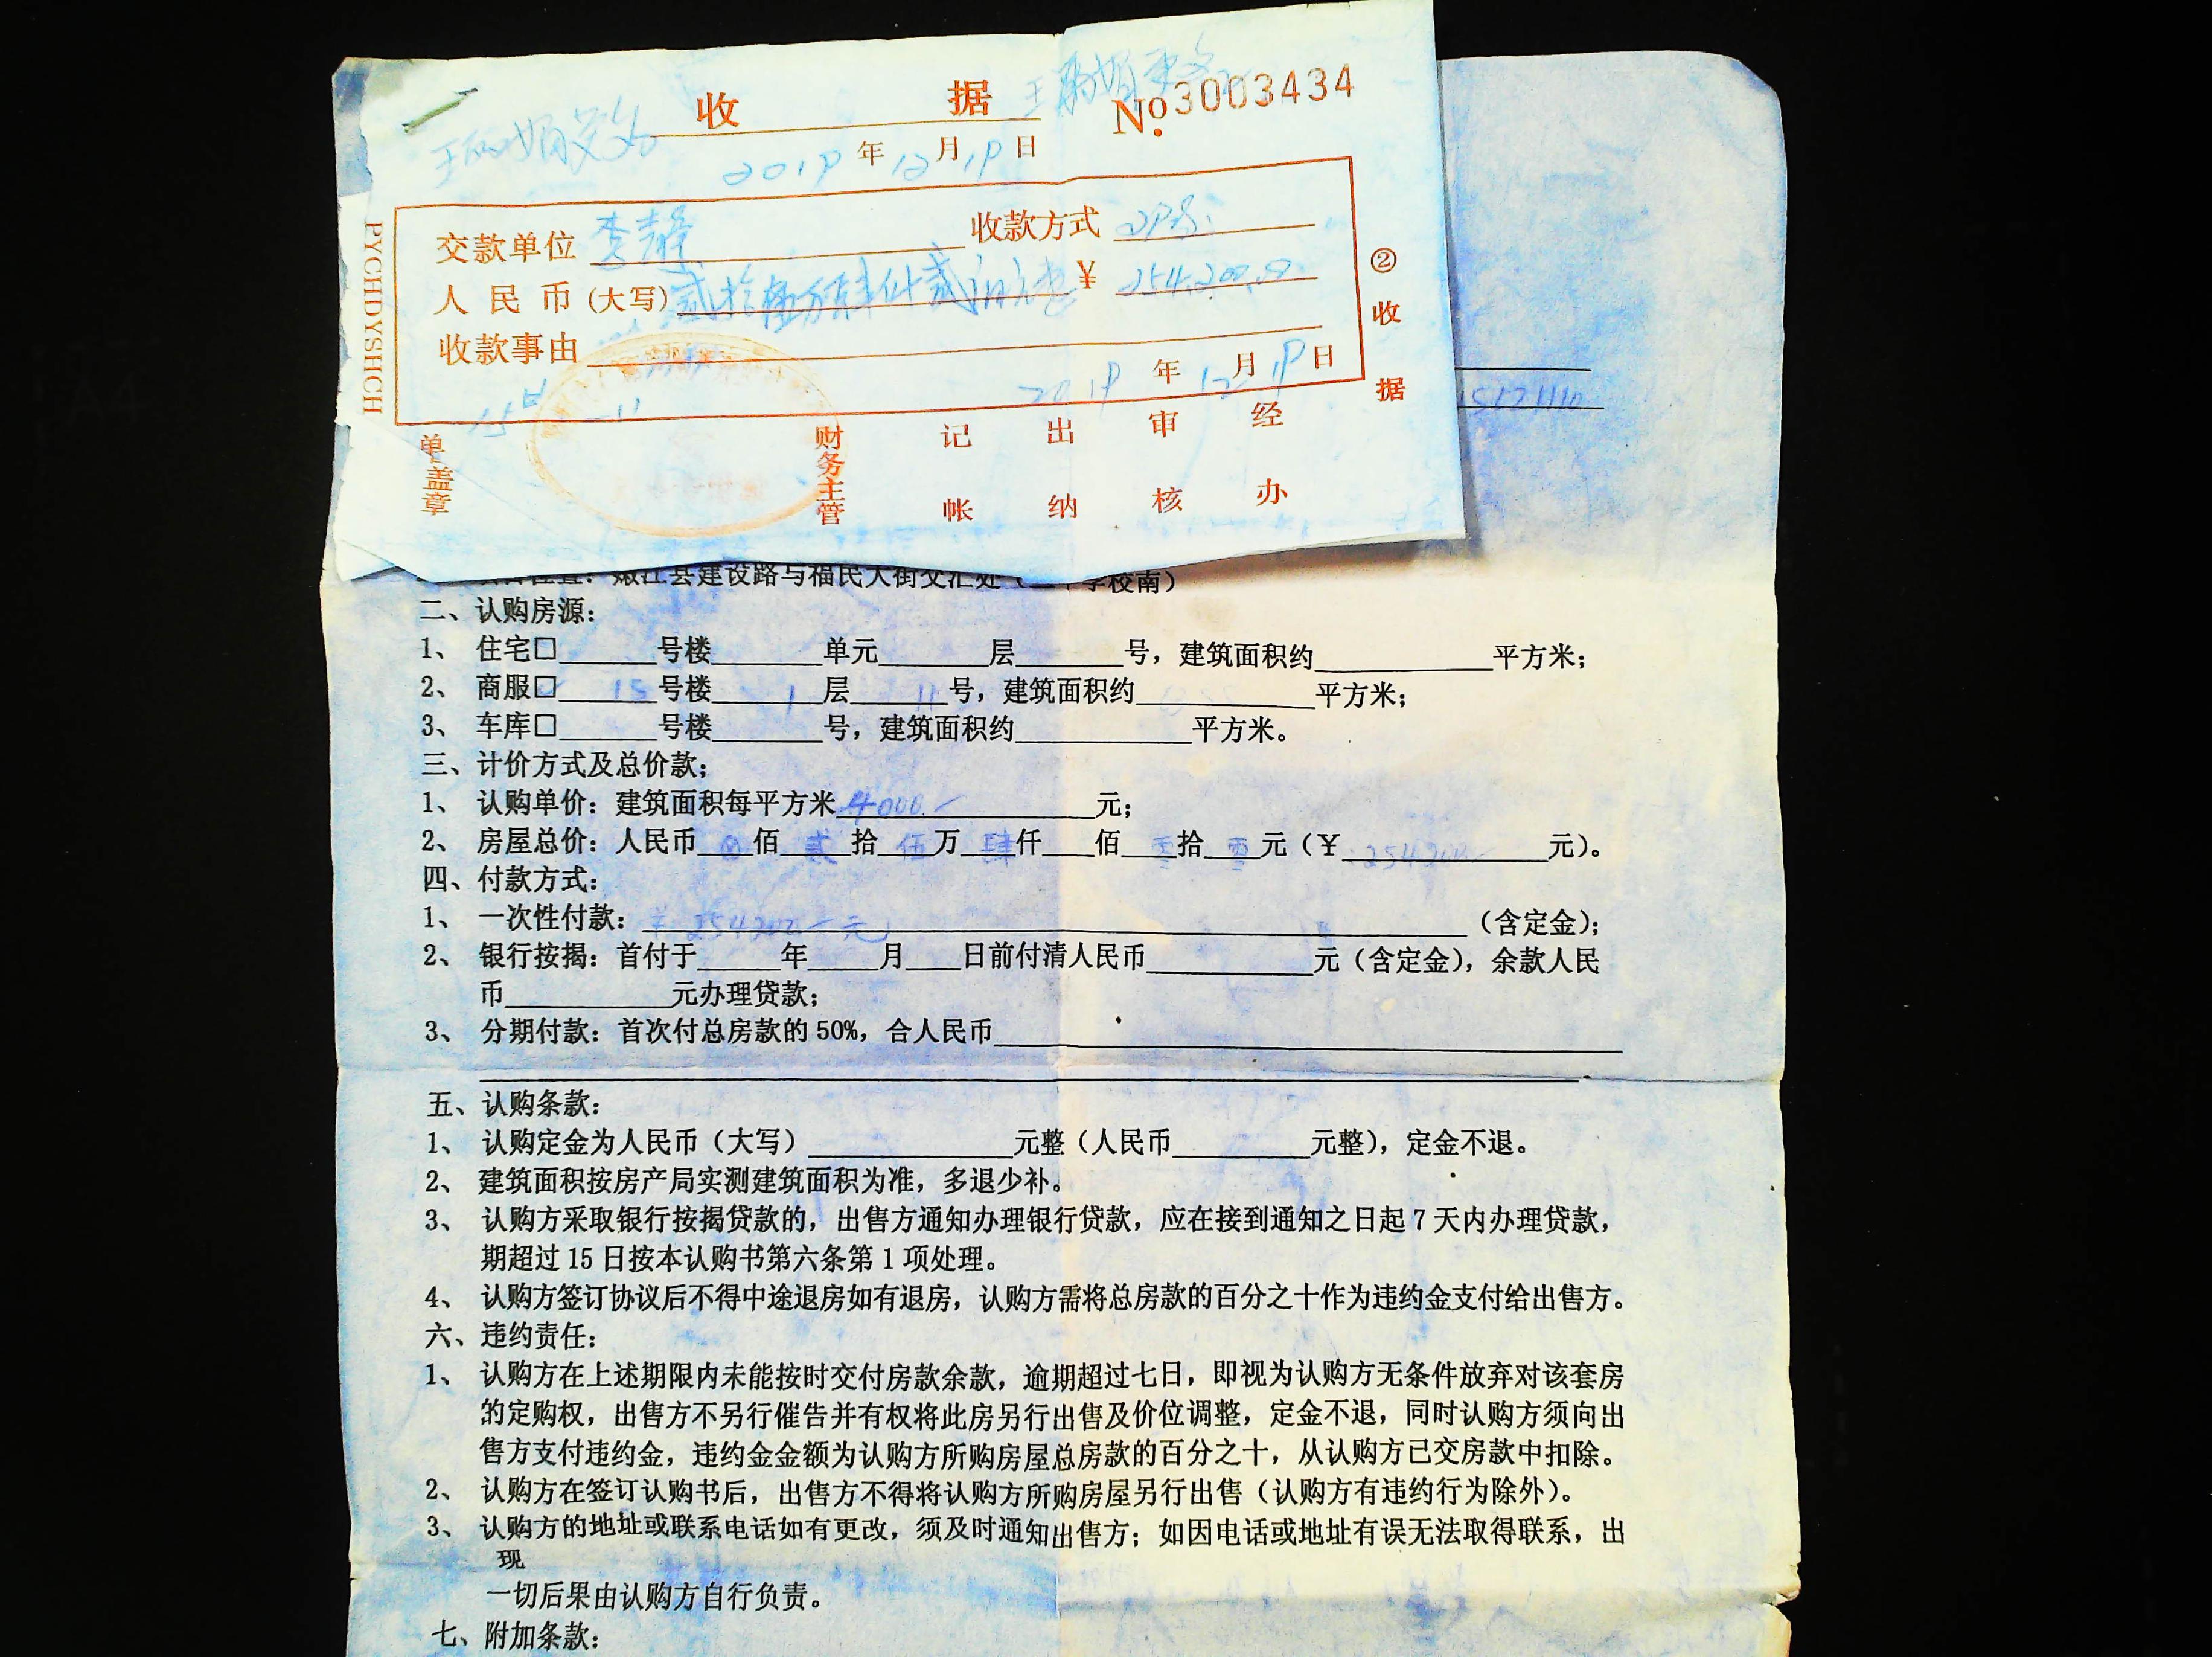 收 据 №3003434
2019年12月19日
交款单位 李静 收款方式
人民币(大写) 贰拾伍万肆仟贰佰元整 ¥ 254,200.00
收款事由
2019年12月19日
单 盖章 财务主管 记帐 出纳 审核 经办
②收据
PYCHDYSHCH
15121110
嫩江县建设路与福民大街交汇处 学校南）
二、认购房源：
1、 住宅□______号楼______单元______层______号，建筑面积约______平方米；
2、 商服□ 15 号楼 1 层 11 号，建筑面积约______平方米；
3、 车库□______号楼______号，建筑面积约______平方米。
三、计价方式及总价款；
1、 认购单价：建筑面积每平方米 4000 元；
2、 房屋总价：人民币 ⊗ 佰 贰 拾 伍 万 肆 仟 佰 零 拾 零 元（¥ 254200 元）。
四、付款方式：
1、 一次性付款：¥ 254200 元（含定金）；
2、 银行按揭：首付于______年______月____日前付清人民币______元（含定金），余款人民
币______元办理贷款；
3、 分期付款：首次付总房款的50%，合人民币______
______。
五、认购条款：
1、 认购定金为人民币（大写）______元整（人民币______元整），定金不退。
2、 建筑面积按房产局实测建筑面积为准，多退少补。
3、 认购方采取银行按揭贷款的，出售方通知办理银行贷款，应在接到通知之日起7天内办理贷款，
期超过15日按本认购书第六条第1项处理。
4、 认购方签订协议后不得中途退房如有退房，认购方需将总房款的百分之十作为违约金支付给出售方。
六、违约责任：
1、 认购方在上述期限内未能按时交付房款余款，逾期超过七日，即视为认购方无条件放弃对该套房
的定购权，出售方不另行催告并有权将此房另行出售及价位调整，定金不退，同时认购方须向出
售方支付违约金，违约金金额为认购方所购房屋总房款的百分之十，从认购方已交房款中扣除。
2、 认购方在签订认购书后，出售方不得将认购方所购房屋另行出售（认购方有违约行为除外）。
3、 认购方的地址或联系电话如有更改，须及时通知出售方；如因电话或地址有误无法取得联系，出
现
一切后果由认购方自行负责。
七、附加条款：